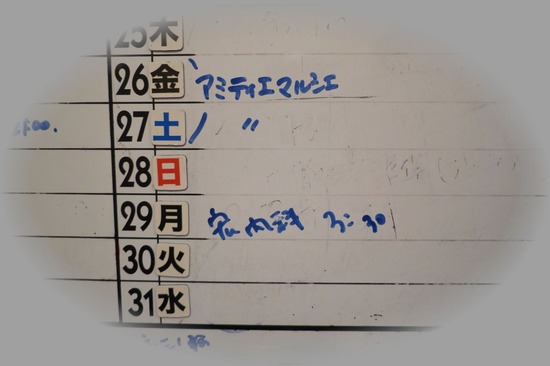 25 木
26 金 アミティエマルシェ
27 土 〃
28 日
29 月 内科 3:30
30 火
31 水